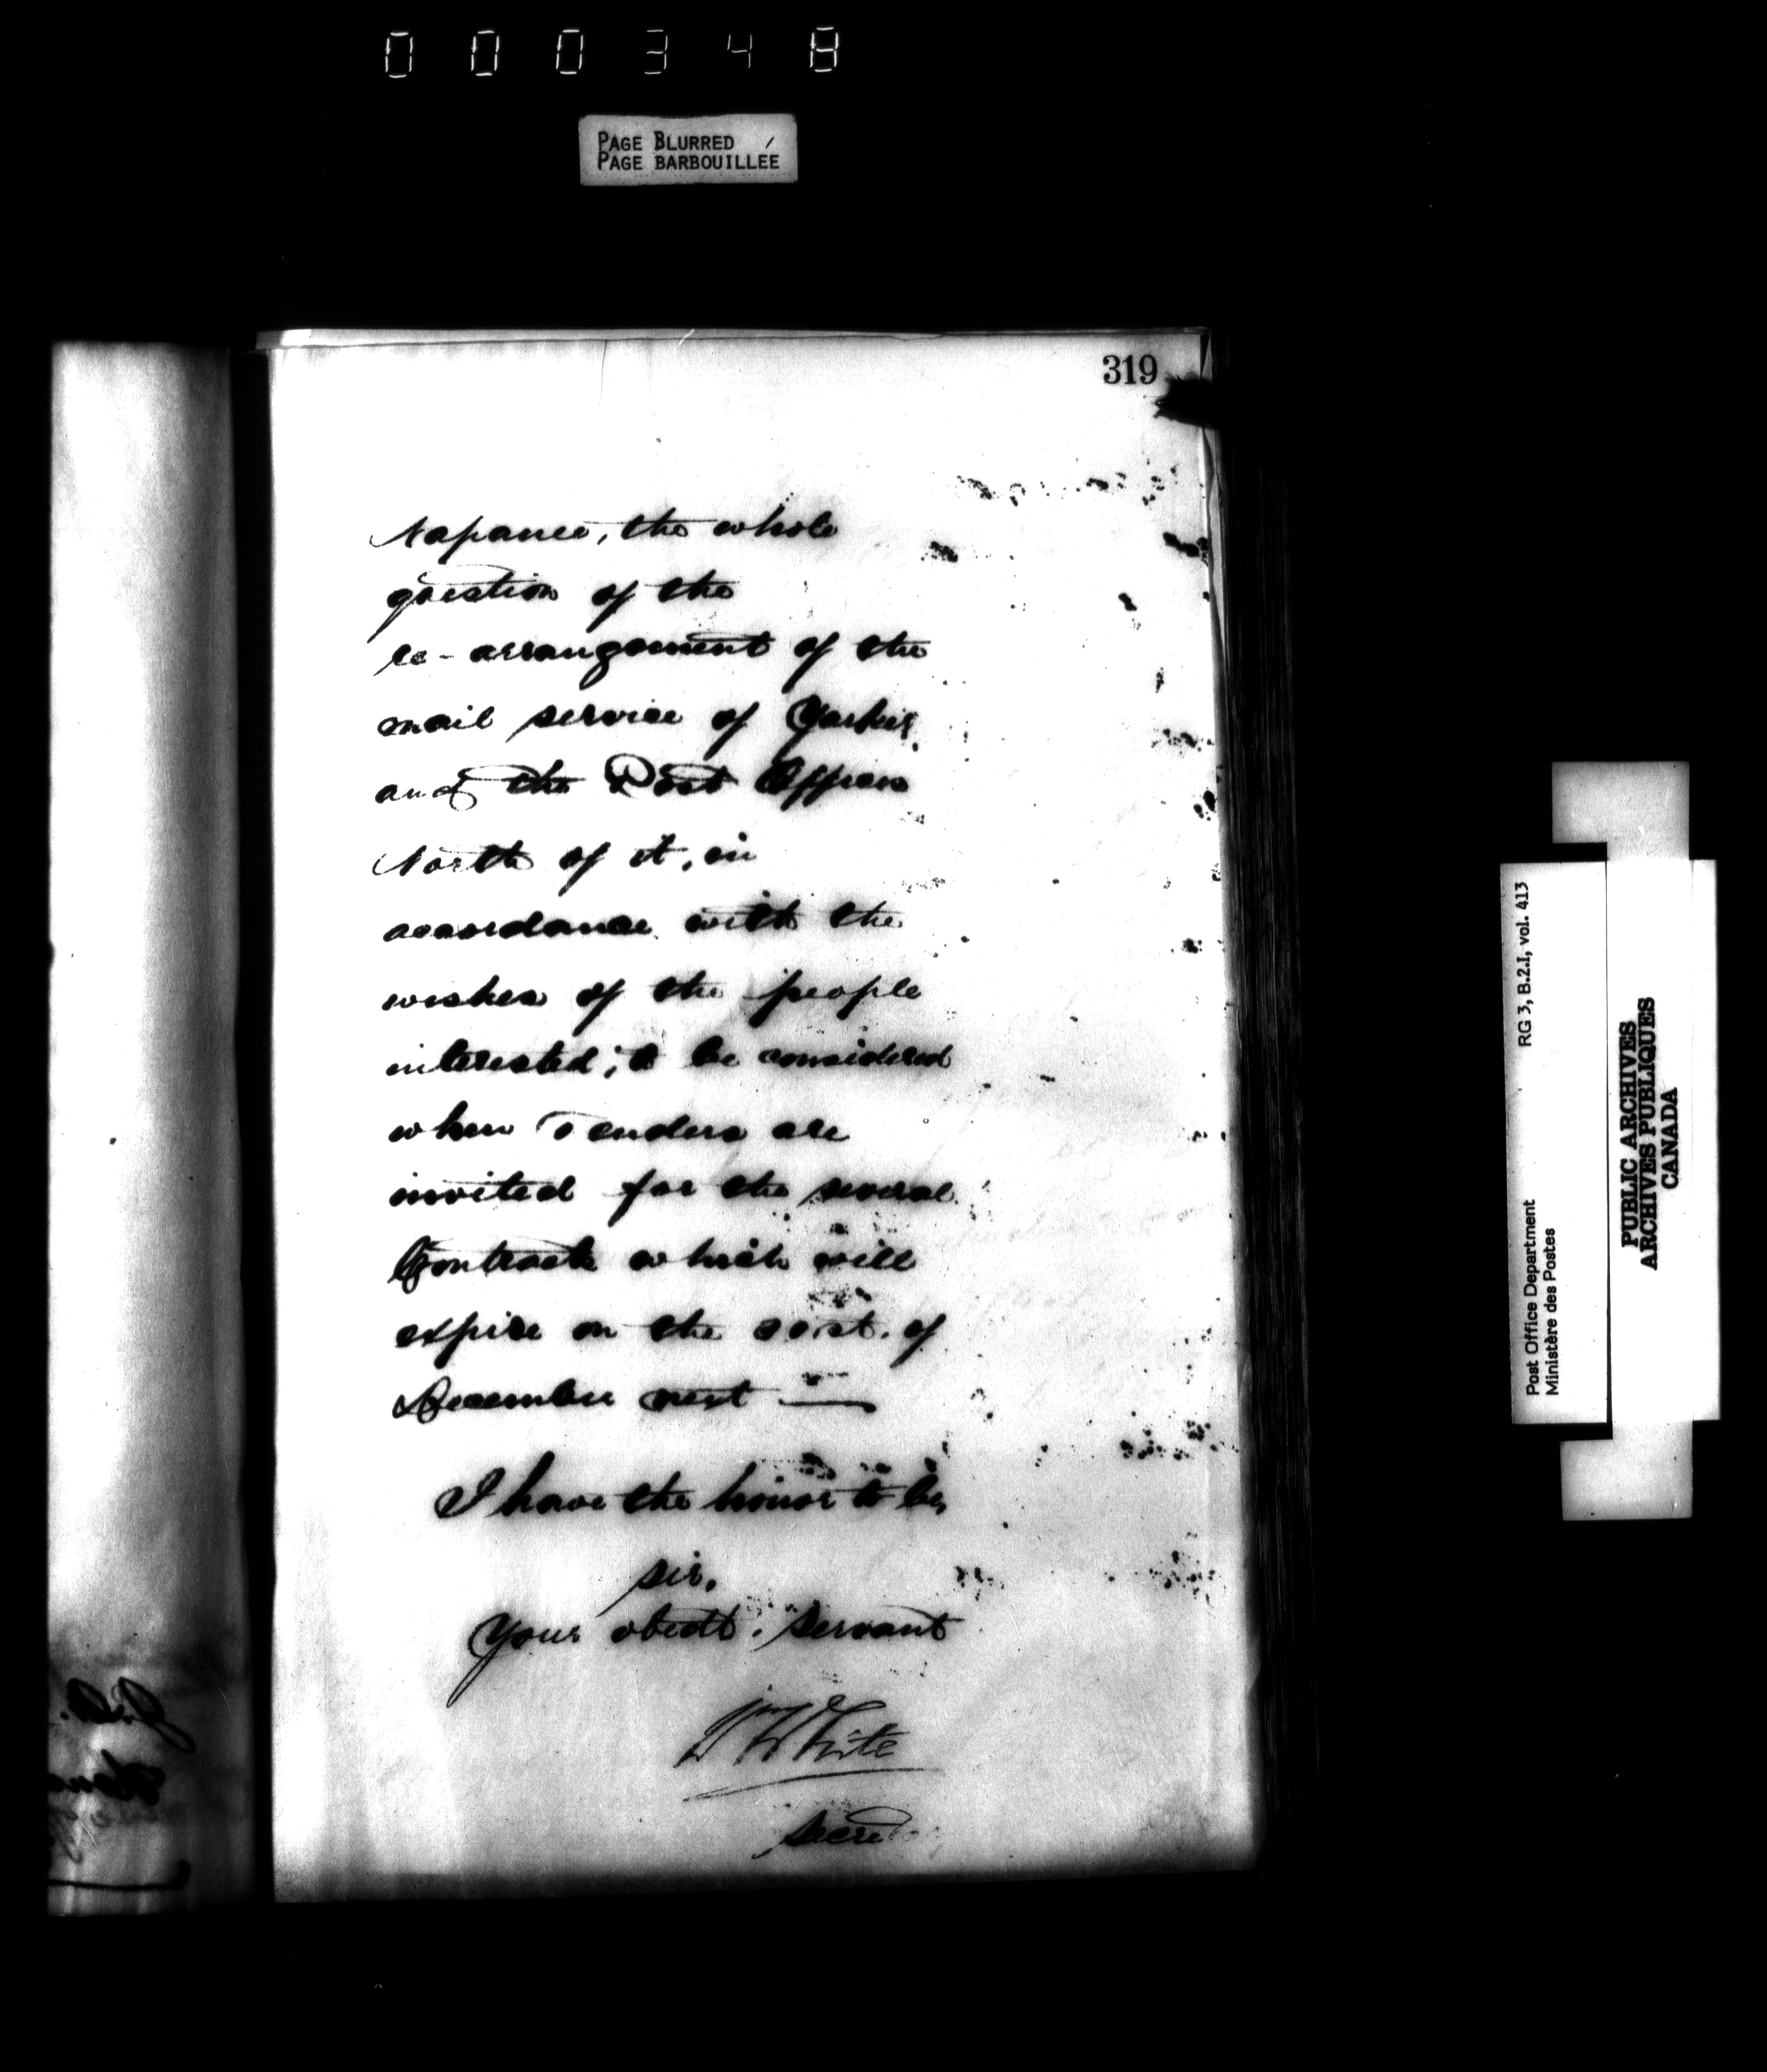 000348
PAGE BLURRED
PAGE BARBOUILLÉE
319
Napanee, the whole
question of the
re-arrangement of the
mail service of Yarker
and the Post Offices
North of it, in
accordance with the
wishes of the people
interested; to be considered
when Tenders are
invited for the several
Contracts which will
expire on the 31st. of
December next —
I have the honor to be,
Sir,
Your obedt. servant
Wm White
Secre
Post Office Department
Ministère des Postes
RG 3, B.2.I, vol. 413
PUBLIC ARCHIVES
ARCHIVES PUBLIQUES
CANADA